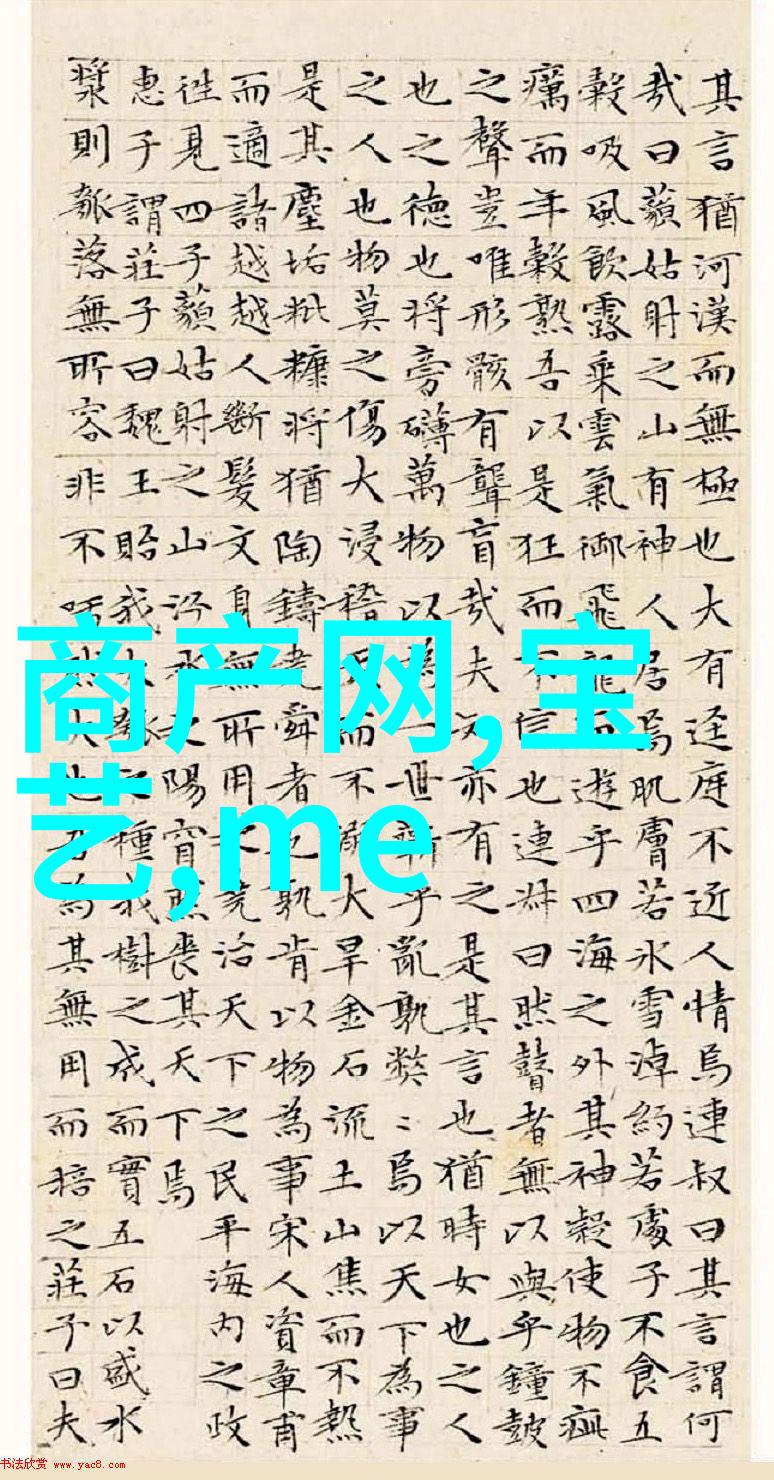 其言猶河漢而無極也大有迳庭不近人情焉連叔曰其言謂何
哉曰藐姑射之山有神人居焉肌膚若氷雪淖約若處子不食五
穀吸風飲露乘雲氣御飛龍而遊乎四海之外其神凝使物不疵
癘而年穀熟吾以是狂而不信也連叔曰然瞽者無以與乎鐘鼓
之聲豈唯形骸有聾盲哉夫知亦有之是其言也猶時女也之人
也之德也将旁礴萬物以為一世蘄乎亂孰弊〻焉以天下為事
之人也物莫之傷大浸稽天而不溺大旱金石流土山焦而不熱
是其塵垢粃糠将猶陶鑄堯舜者也孰肯以物為事宋人資章甫
而適諸越越人斷髮文身無所用之堯治天下之民平海内之政
往見四子藐姑射之山汾水之陽窅然喪其天下焉
惠子謂莊子曰魏王貽我大瓠之種我樹之成而實五石以盛水
漿則瓠落無所容非不呺然大也吾為其無用而掊之莊子曰夫
商产网,宝
艺,me
书法欣赏 www.yac8.com